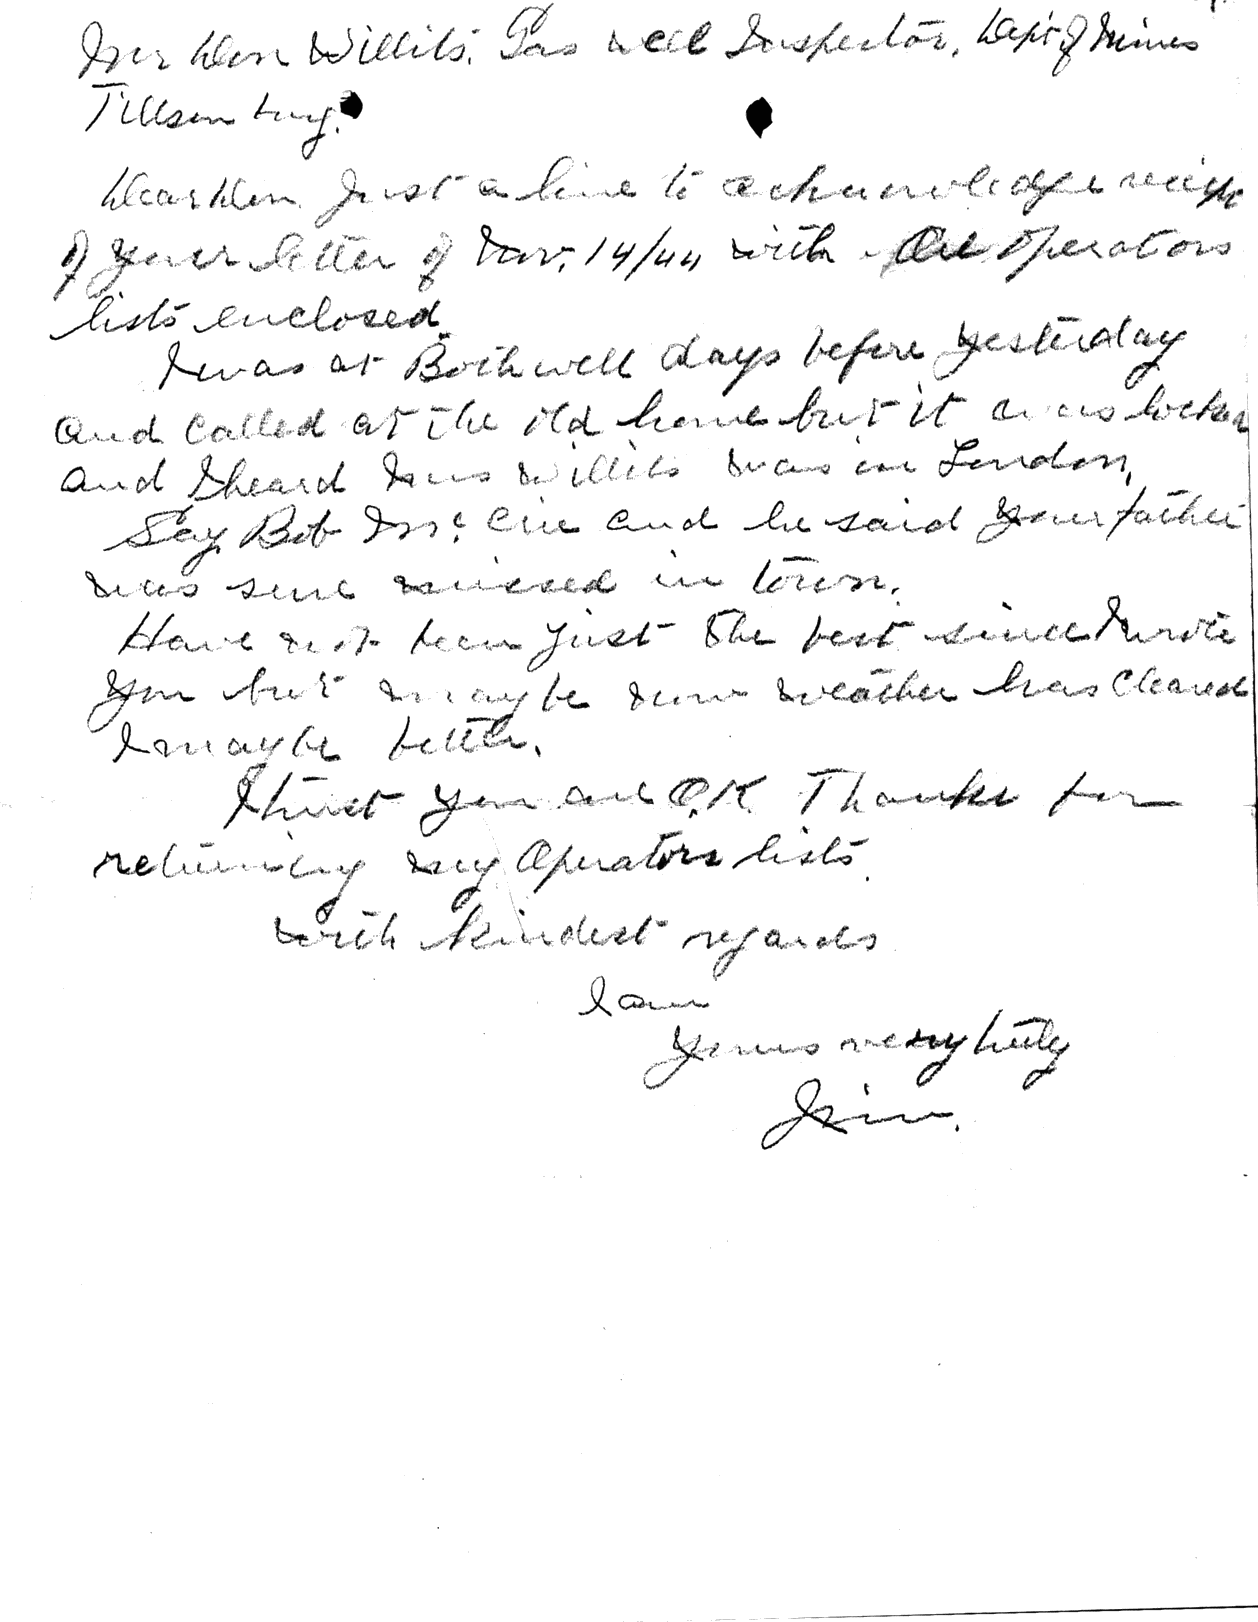 Mr Don Willits, Gas Well Inspector, Dept of Mines
Tillsonburg.
Dear Don Just a line to acknowledge receipt
of your letter of Nov. 14/44 with Oil Operators
lists enclosed.
I was at Bothwell days before yesterday
and called at the old home but it was locked
and I heard Mrs Willits was in London,
Say Bob Mc and he said your father
was sure missed in town.
Have not been just the best since I wrote
you but maybe now weather has cleared
I maybe better.
I trust you are O.K. Thanks for
returning my Operators lists.
With kindest regards
I am
Yours very truly
Jim.